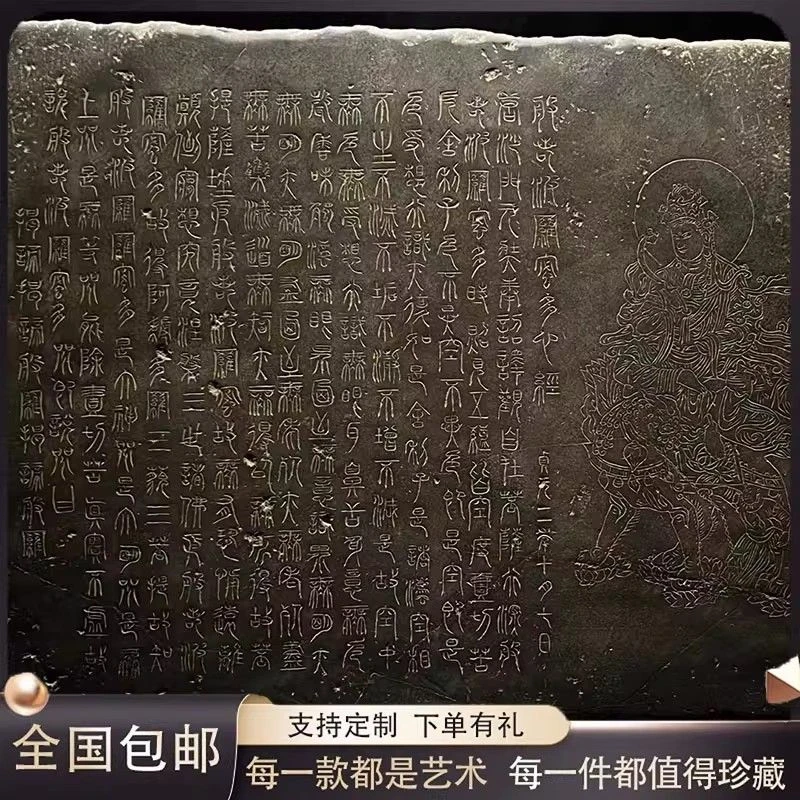 般若波羅蜜多心經 貞元二年十月六日
宮沙門元奘奉詔譯觀自在菩薩行深般
若波羅蜜多時照見五蘊皆空度一切苦
厄舍利子色不異空不異色即是空即是
色受想亦識亦復如是舍利子是諸法空相
不生不滅不垢不淨不增不減是故空中
無色無受想亦識無眼耳鼻舌身意無色
聲香味觸法無眼界乃至無意識界無明亦
無明亦無明盡乃至無老死亦無老死盡
無苦集滅道無智亦無得以無所得故菩
提薩埵依般若波羅蜜故無有恐怖遠離
顛倒夢想究竟涅槃三世諸佛依般若波
羅蜜多故得阿耨多羅三藐三菩提故知
般若波羅蜜多是大神咒是大明咒是無
上咒是無等咒能除一切苦真實不虛故
說般若波羅蜜多咒即說咒曰
揭諦揭諦般羅揭諦般羅
全国包邮
支持定制 下单有礼
每一款都是艺术 每一件都值得珍藏